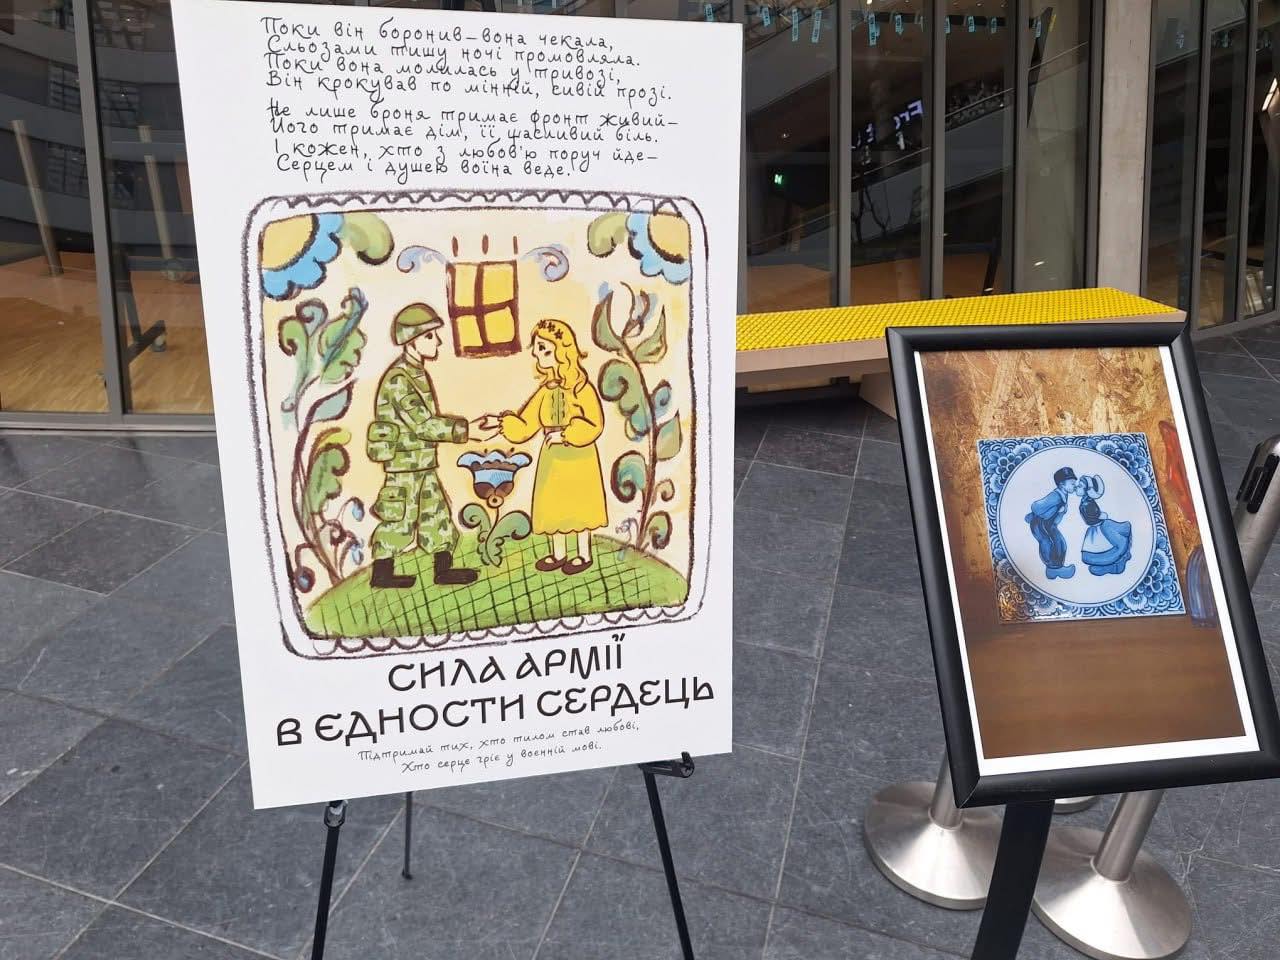 Поки він боронив – вона чекала,
Сльозами тишу ночі промовляла.
Поки вона молилась у тривозі,
Він крокував по мінній, сивій прозі.
Не лише броня тримає фронт живий –
Його тримає дім, її щасливий біль.
І кожен, хто з любов'ю поруч йде –
Серцем і душею воїна веде.
СИЛА АРМІЇ
В ЄДНОСТИ СЕРДЕЦЬ
Підтримай тих, хто тилом став любові,
Хто серце гріє у воєнній мові.